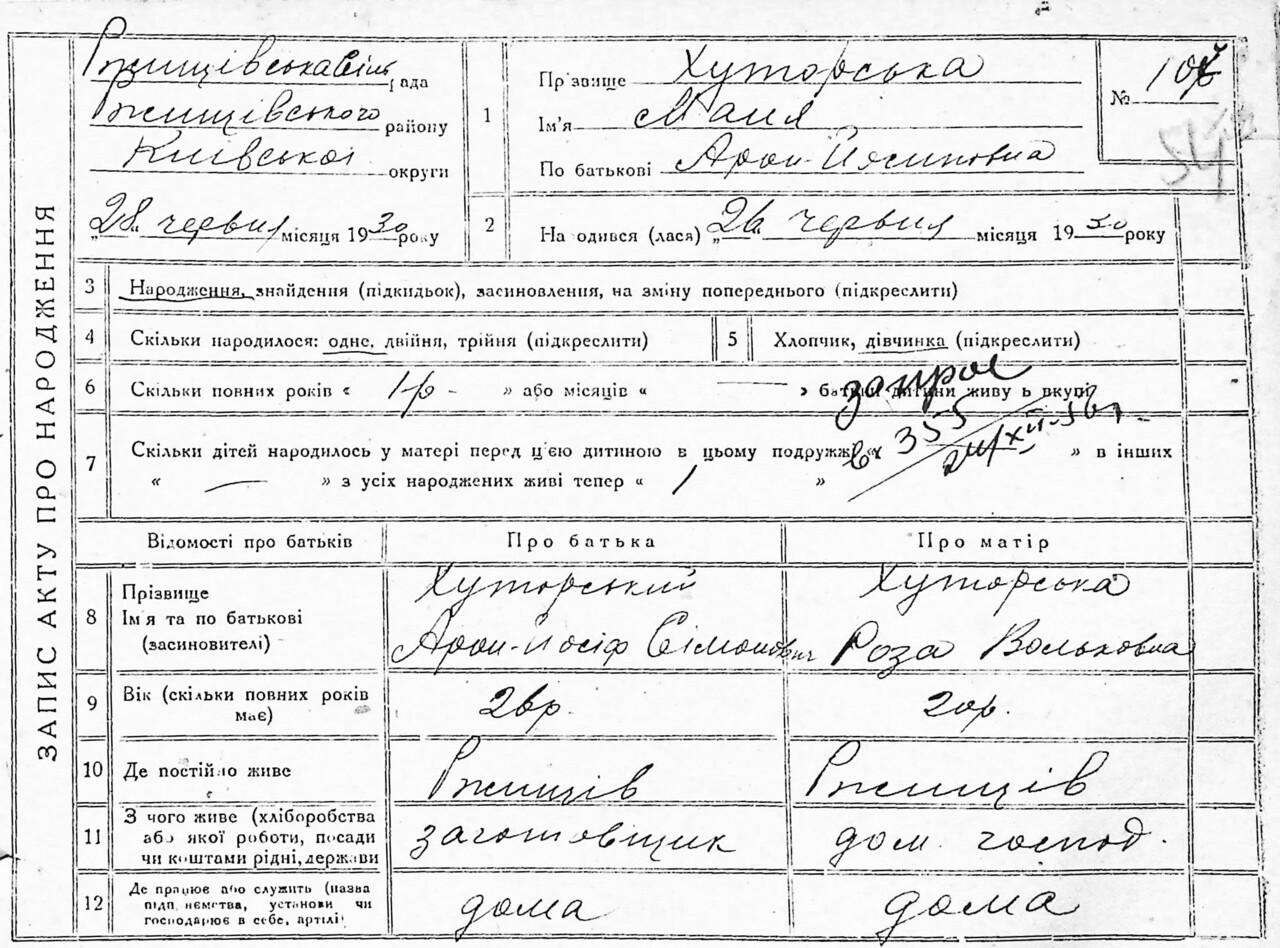 ЗАПИС АКТУ ПРО НАРОДЖЕННЯ
Ржищівська сіль рада
Ржищівського району
Київської округи
„28“ червня місяця 1930 року
1
Пр'звище Хуторська
Ім'я Маня
По батькові Арон-Йосиповна
№ 10
2
На одився (лася) „26“ червня місяця 1930 року
3
Народження, знайдення (підкидьок), засиновлення, на зміну попереднього (підкреслити)
4
Скільки народилося: одне, двійня, трійня (підкреслити)
5
Хлопчик, дівчинка (підкреслити)
6
Скільки повних років « 1 р - » або місяців « — » батьки дитини живу ь вкупі
запрос
вх 355
24/XII-56г
7
Скільки дітей народилось у матері перед ц'ею дитиною в цьому подружжі « » в інших
« — » з усіх народжених живі тепер « 1 »
Відомості про батьків
Про батька
Про матір
8
Прізвище
Ім я та по батькові
(засиновителі)
Хуторський
Арон-Йосіф Сімонович
Хуторська
Роза Вольковна
9
Вік (скільки повних років
має)
26р.
20р.
10
Де постійно живе
Ржищів
Ржищів
11
З чого живе (хліборобства
або якої роботи, посади
чи коштами рідні, держави
заготовщик
дом. господ.
12
Де працює або служить (назва
підп иємства, установи чи
господарює в себе, артілі)
дома
дома